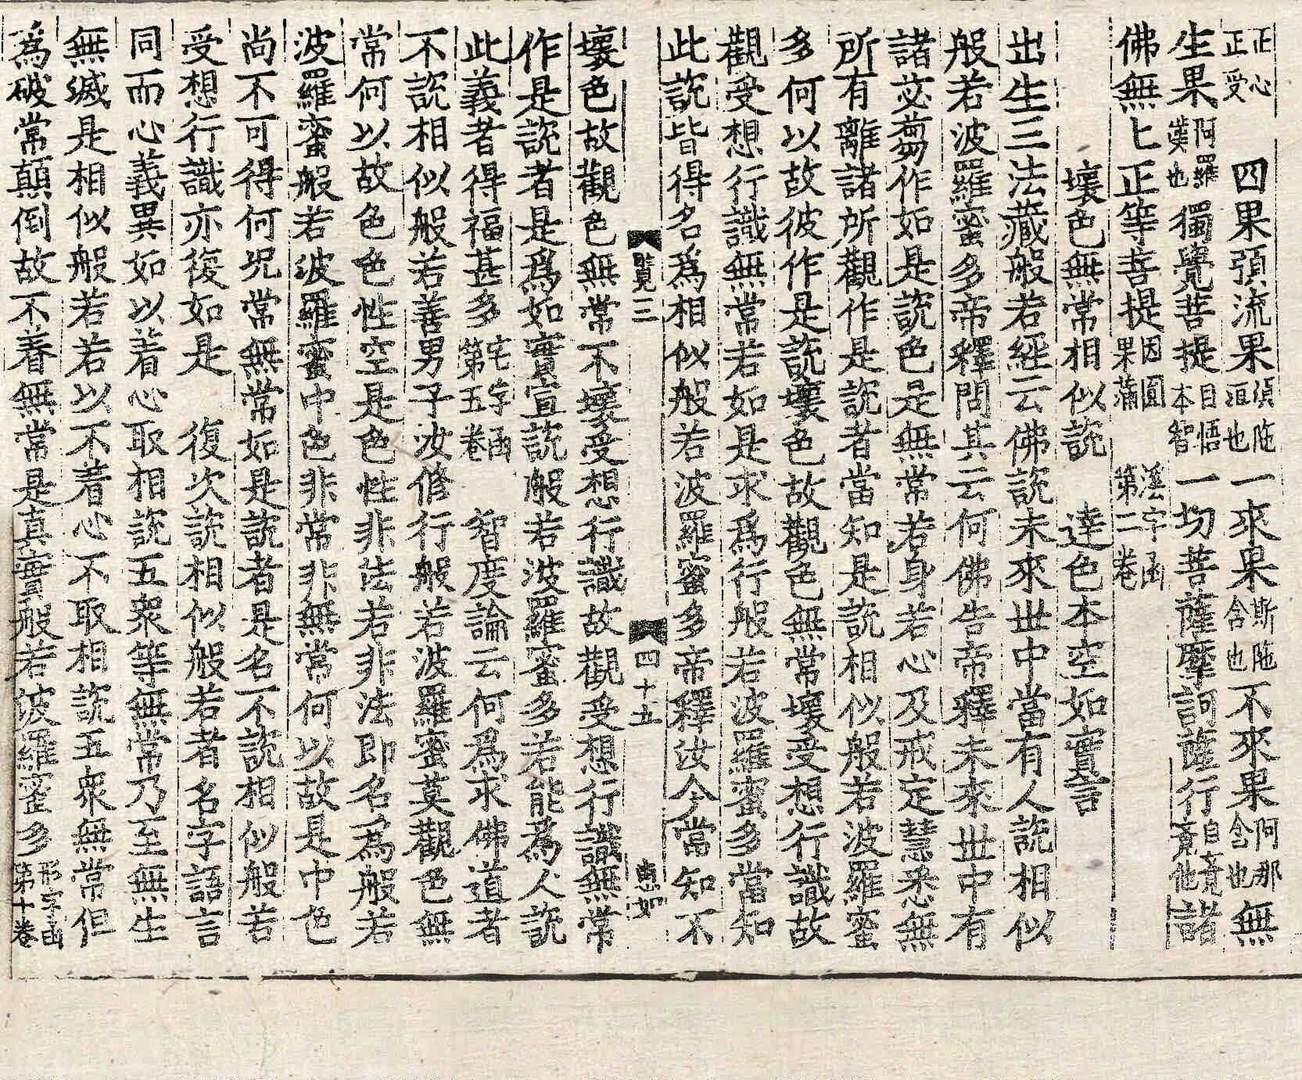 正心正受　四果預流果須陁洹也一來果斯陁含也不來果阿那含也無
生果阿羅漢也獨覺菩提自悟本智一切菩薩摩訶薩行自竟竟他諸
佛無上正等菩提因圓果滿　溪字函第二卷
壞色無常相似說　達色本空如實言
出生三法藏般若經云佛說未來世中當有人說相似
般若波羅蜜多帝釋問其云何佛告帝釋未來世中有
諸苾蒭作如是說色是無常若身若心及戒定慧悉無
所有離諸所觀作是說者當知是說相似般若波羅蜜
多何以故彼作是說壞色故觀色無常壞受想行識故
觀受想行識無常若如是求爲行般若波羅蜜多當知
此說皆得名爲相似般若波羅蜜多帝釋汝今當知不
覽三　四十五　惠如
壞色故觀色無常不壞受想行識故觀受想行識無常
作是說者是爲如實宣說般若波羅蜜多若能爲人說
此義者得福甚多宅字函第五卷　智度論云何爲求佛道者
不說相似般若善男子汝修行般若波羅蜜莫觀色無
常何以故色色性空是色性非法若非法即名爲般若
波羅蜜般若波羅蜜中色非常非無常何以故是中色
尚不可得何况常無常如是說者是名不說相似般若
受想行識亦復如是　復次說相似般若者名字語言
同而心義異如以着心取相說五衆等無常乃至無生
無滅是相似般若若以不着心不取相說五衆無常但
爲破常顛倒故不着無常是真實般若波羅蜜多形字函第十卷